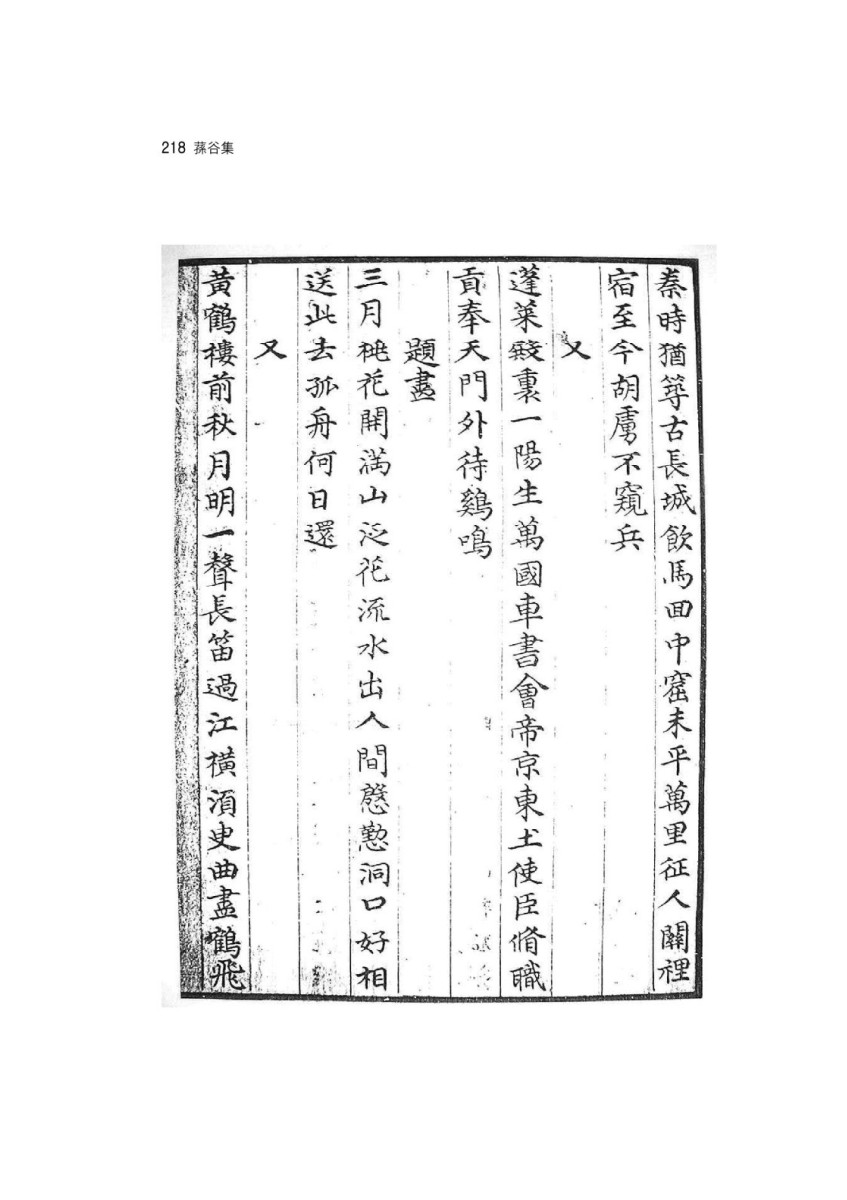 218 蓀谷集
秦時猶筭古長城飮馬囬中窟未平萬里征人關裡
宿至今胡虜不窺兵
又
蓬萊殿裏一陽生萬國車書會帝京東土使臣脩職
貢奉天門外待鷄鳴
題畫
三月桃花開滿山泛花流水出人間慇懃洞口好相
送此去孤舟何日還
又
黃鶴樓前秋月明一聲長笛過江橫湏臾曲盡鶴飛